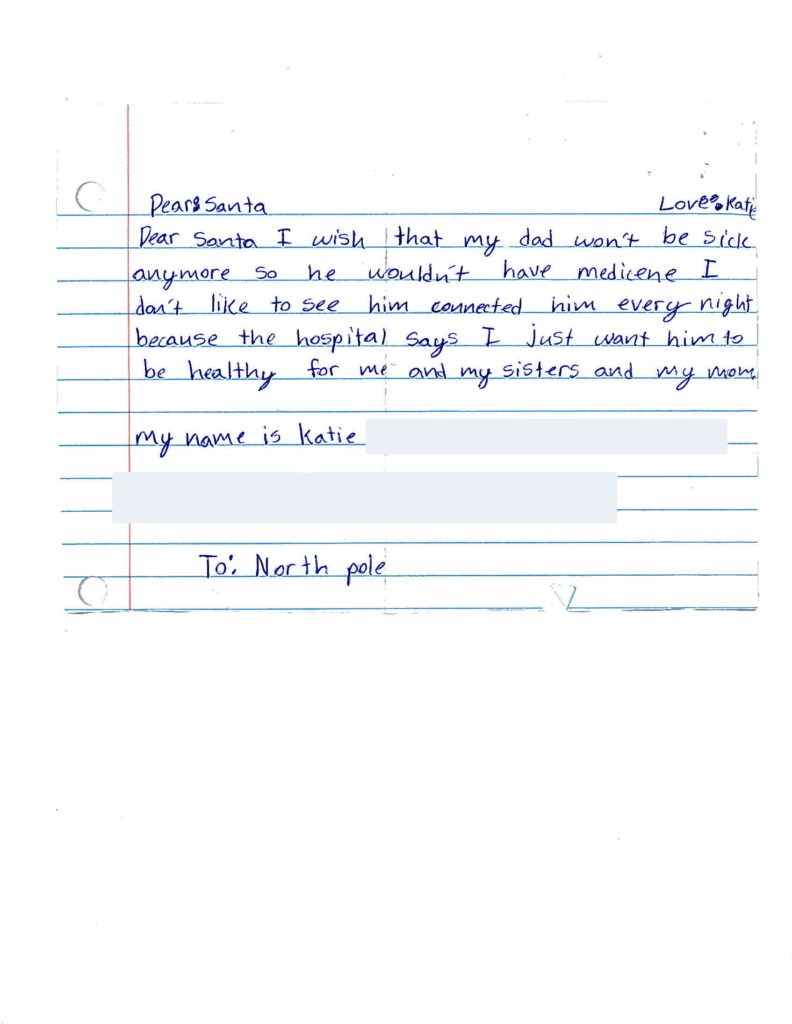 Dear: Santa Love: Katie
Dear Santa I wish that my dad won't be sick
anymore so he wouldn't have medicene I
don't like to see him connected him every night
because the hospital says I just want him to
be healthy for me and my sisters and my mom.
my name is Katie
To: North pole